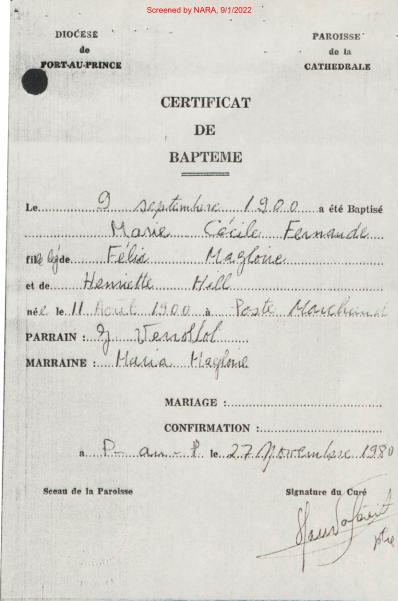 Screened by NARA, 9/1/2022
DIOCÈSE
de
PORT-AU-PRINCE
PAROISSE
de la
CATHEDRALE
CERTIFICAT
DE
BAPTEME
Le 9 septembre 1900 a été Baptisé
Marie Cécile Fernande
fille lég. de Félix Magloire
et de Henriette Hill
née le 11 Août 1900 à Poste Marchand
PARRAIN :
MARRAINE : Maria Magloire
MARIAGE :
CONFIRMATION :
a P-au-P le 27 Novembre 1980
Sceau de la Paroisse
Signature du Curé
ptre